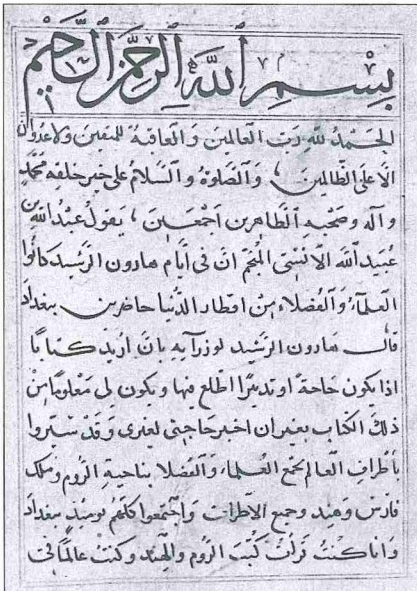 بسم الله الرحمن الرحيم
الحمد لله رب العالمين والعاقبة للمتقين ولا عدوان
الا على الظالمين والصلوة والسلام على خير خلقه محمد
وآله وصحبه الطاهرين اجمعين يقول عبد الله بن
عبيد الله المنجم ان في أيام هارون الرشيد كانوا
العلماء والفضلاء من اقطار الدنيا حاضرين ببغداد
قال هارون الرشيد لوزرآيه بان اريد كتابا
اذا يكون حاجة او تدبيرا اطلع فيها ويكون لي معلوما من
ذلك الكتاب بغير ان اخبر حاجتي لغيري وقد ستروا
بأطراف العالم بجمع العلماء والفضلا بناحية الروم وملك
فارس وهند وجميع الاطراف واجتمعوا كلهم يوميذ ببغداد
وانا كنت قرأت كتب الروم والهند وكنت عالما في